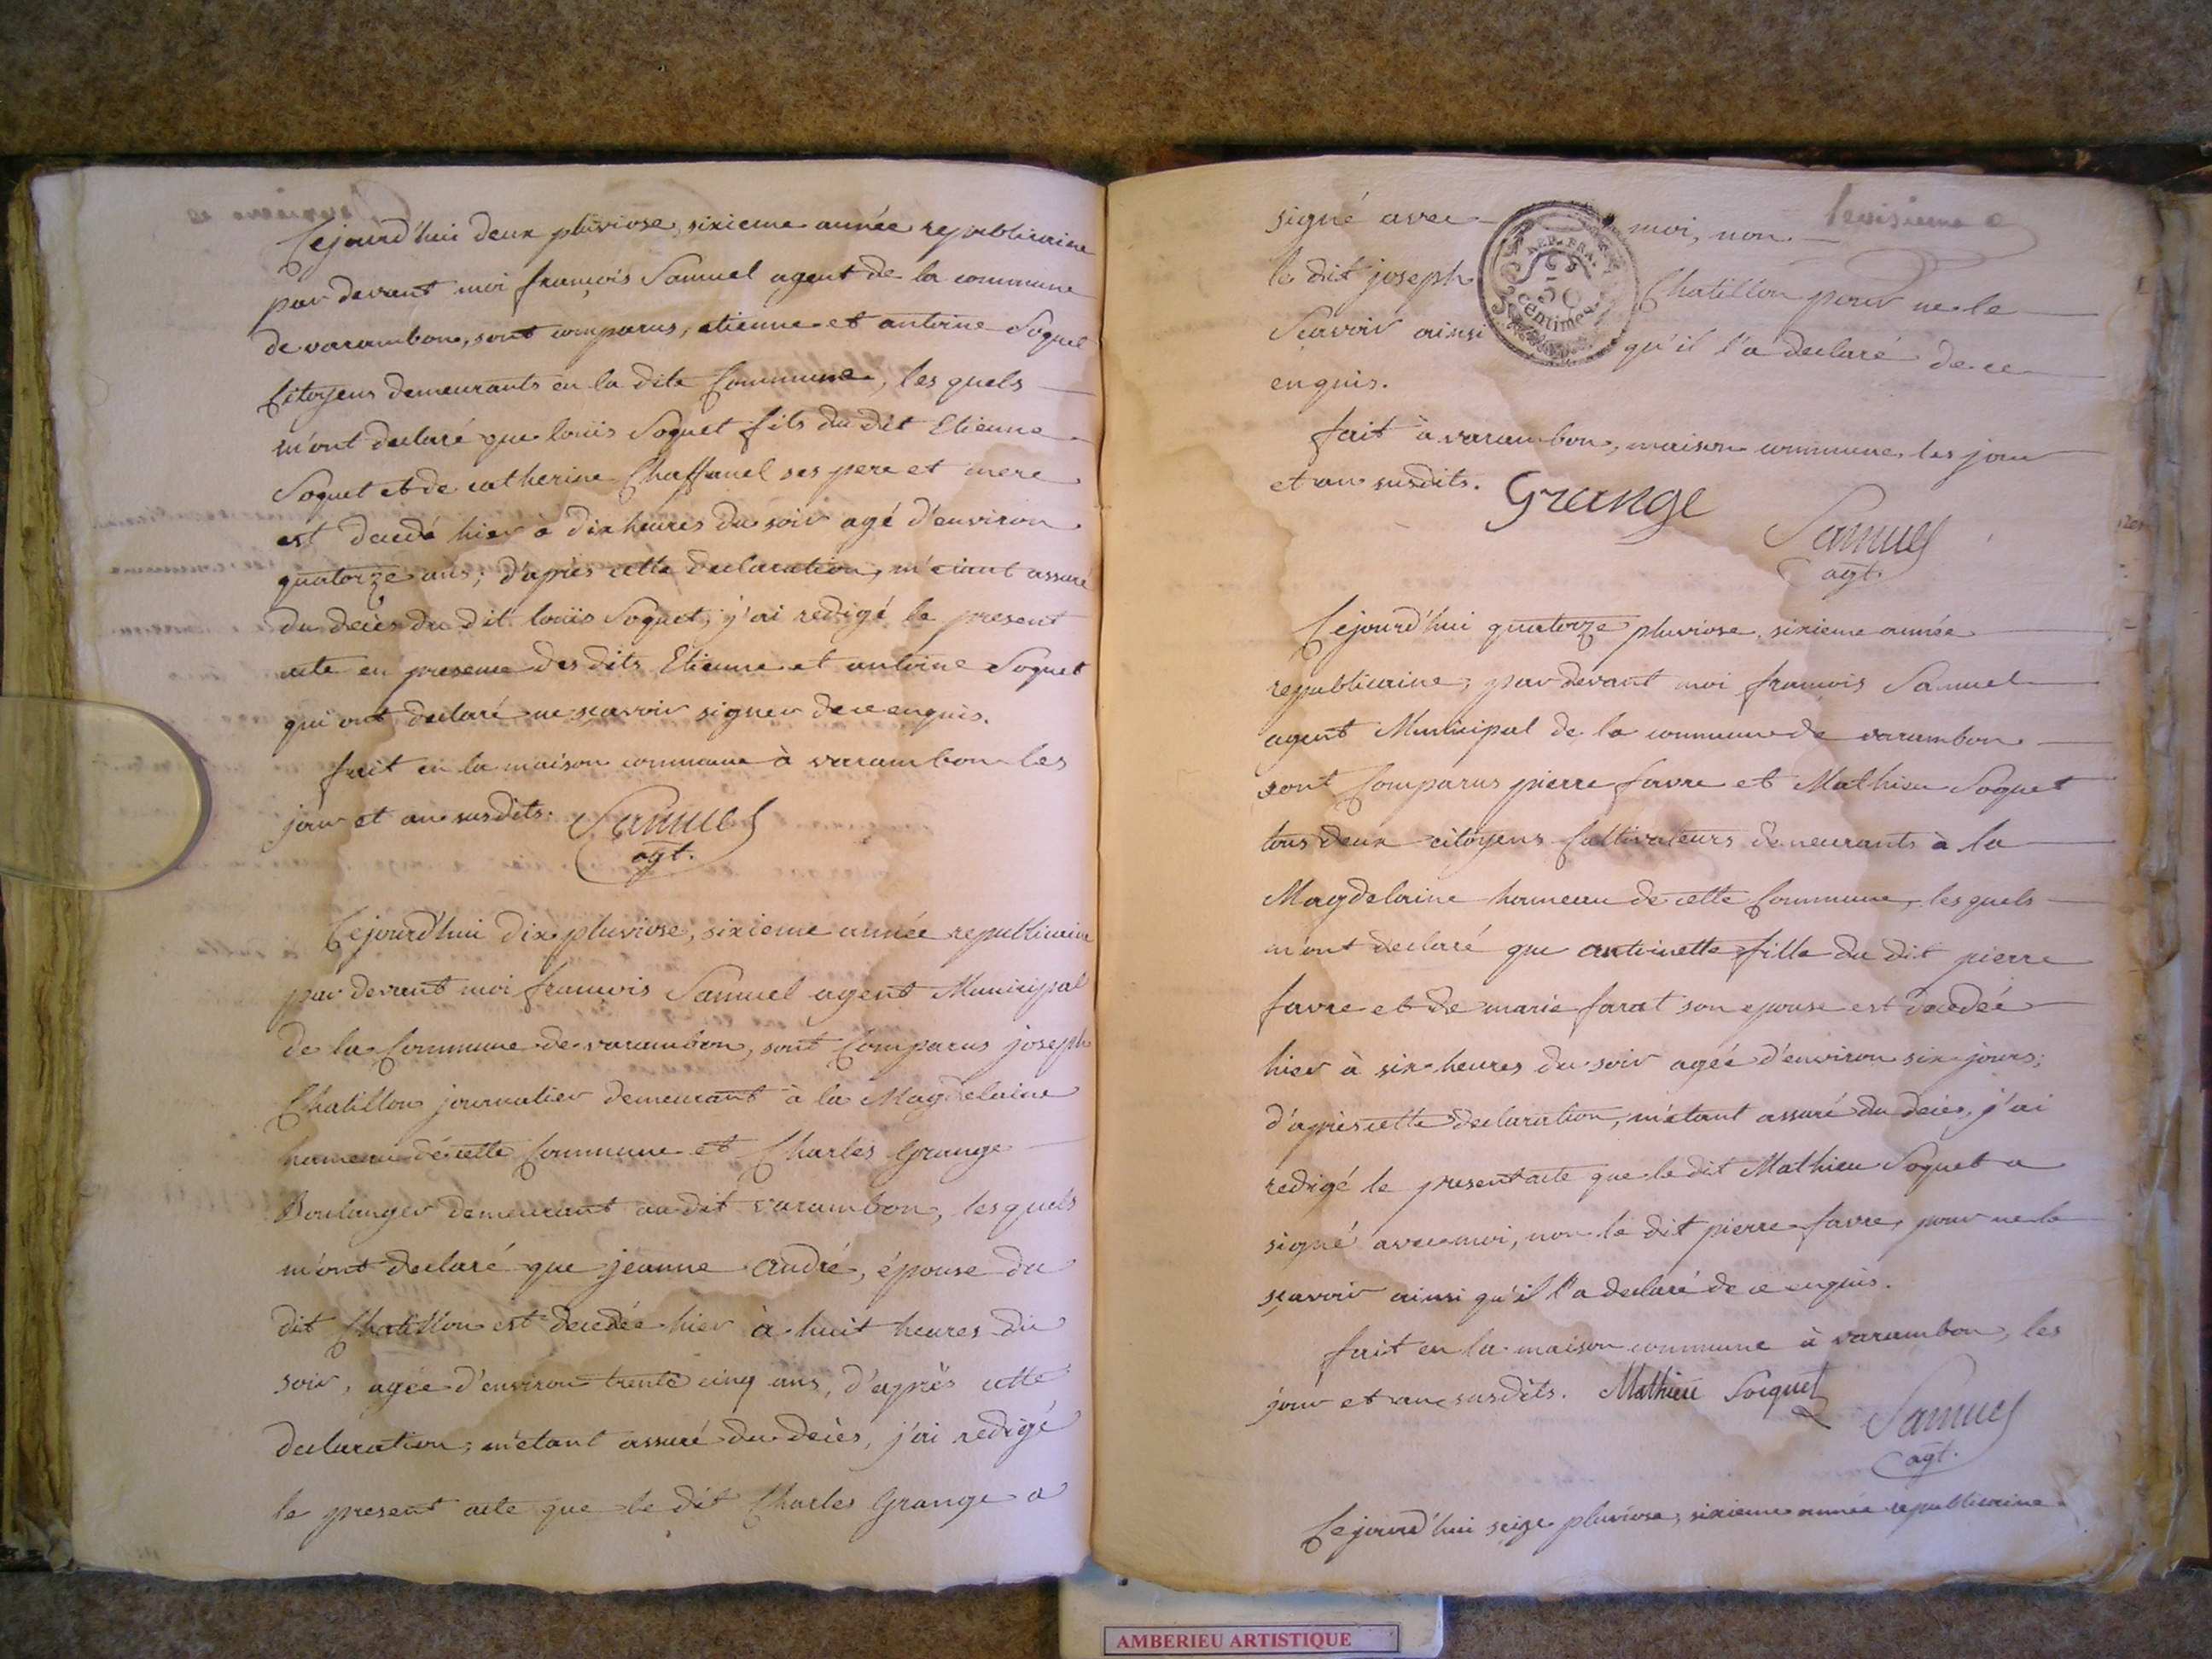 Cejourd'hui deux pluviose, sixieme année republicaine
par devant moi françois Samuel agent de la commune
de varambon, sont comparus, etienne et antoine Soquet
Citoyens demeurants en la dite Commune, les quels
m'ont declaré que louis Soquet fils du dit Etienne
Soquet et de catherine Chaffanel ses pere et mere
est decedé hier à dix heures du soir agé d'environ
quatorze ans; d'après cette declaration, m'etant assuré
du decès du dit louis Soquet, j'ai redigé le present
acte en presence des dits Etienne et antoine Soquet
qui ont declaré ne sçavoir signer de ce enquis.
fait en la maison commune à varambon les
jour et an susdits. Samuel
agt.
Cejourd'hui dix pluviose, sixieme année republicaine
par devant moi francois Samuel agent Municipal
de la Commune de varambon, sont Comparus joseph
Chatillon journalier demeurant à la Magdelaine
hameau de cette Commune et Charles Grange
Boulanger demeurant au dit varambon, les quels
m'ont declaré que jeanne andré, épouse du
dit Chatillon est decedée hier à huit heures du
soir, agée d'environ trente cinq ans, d'après cette
declaration, m'etant assuré du decès, j'ai redigé
le present acte que le dit Charles Grange a
troisieme
signé avec moi, non
REP. FRA.
50
centimes
le dit joseph Chatillon pour ne le
Scavoir ainsi qu'il l'a declaré de ce
enquis.
fait à varambon, maison commune, les jour
et an susdits. Grange
Samuel
agt.
Cejourd'hui quatorze pluviose, sixieme année
republicaine, par devant moi francois Samuel
agent Municipal de la commune de varambon
sont Comparus pierre favre et Mathieu Soquet
tous deux citoyens Cultivateurs demeurants à la
Magdelaine hameau de cette Commune, les quels
m'ont declaré que antoinette fille du dit pierre
favre et de marie farat son epouse est decedée
hier à six heures du soir agée d'environ six jours;
d'après cette declaration, m'etant assuré du decès, j'ai
redigé le present acte que le dit Mathieu Soquet a
signé avec moi, non le dit pierre favre, pour ne le
sçavoir ainsi qu'il l'a declaré de ce enquis.
fait en la maison commune à varambon, les
jour et an susdits. Mathieu Soequet
Samuel
agt.
Cejourd'hui seize pluviose, sixieme année republicaine
AMBERIEU ARTISTIQUE